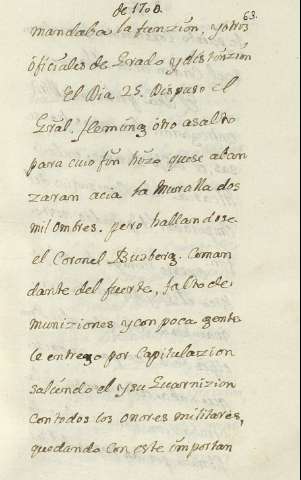 de 1700.
63.
mandaba la funzion, y otros
oficiales de Grado y distinzion
El Dia 25. Dispuso el
Gral. Fleming otro asalto
para cuio fin hizo que se aban
zaran acia la Muralla dos
mil ombres. pero hallandose
el Coronel Busberg. Coman
dante del fuerte, falto de
muniziones y con poca gente
le entrego por Capitulazion
saliendo el y su Guarnizion
con todos los onores militares,
quedando con este importan